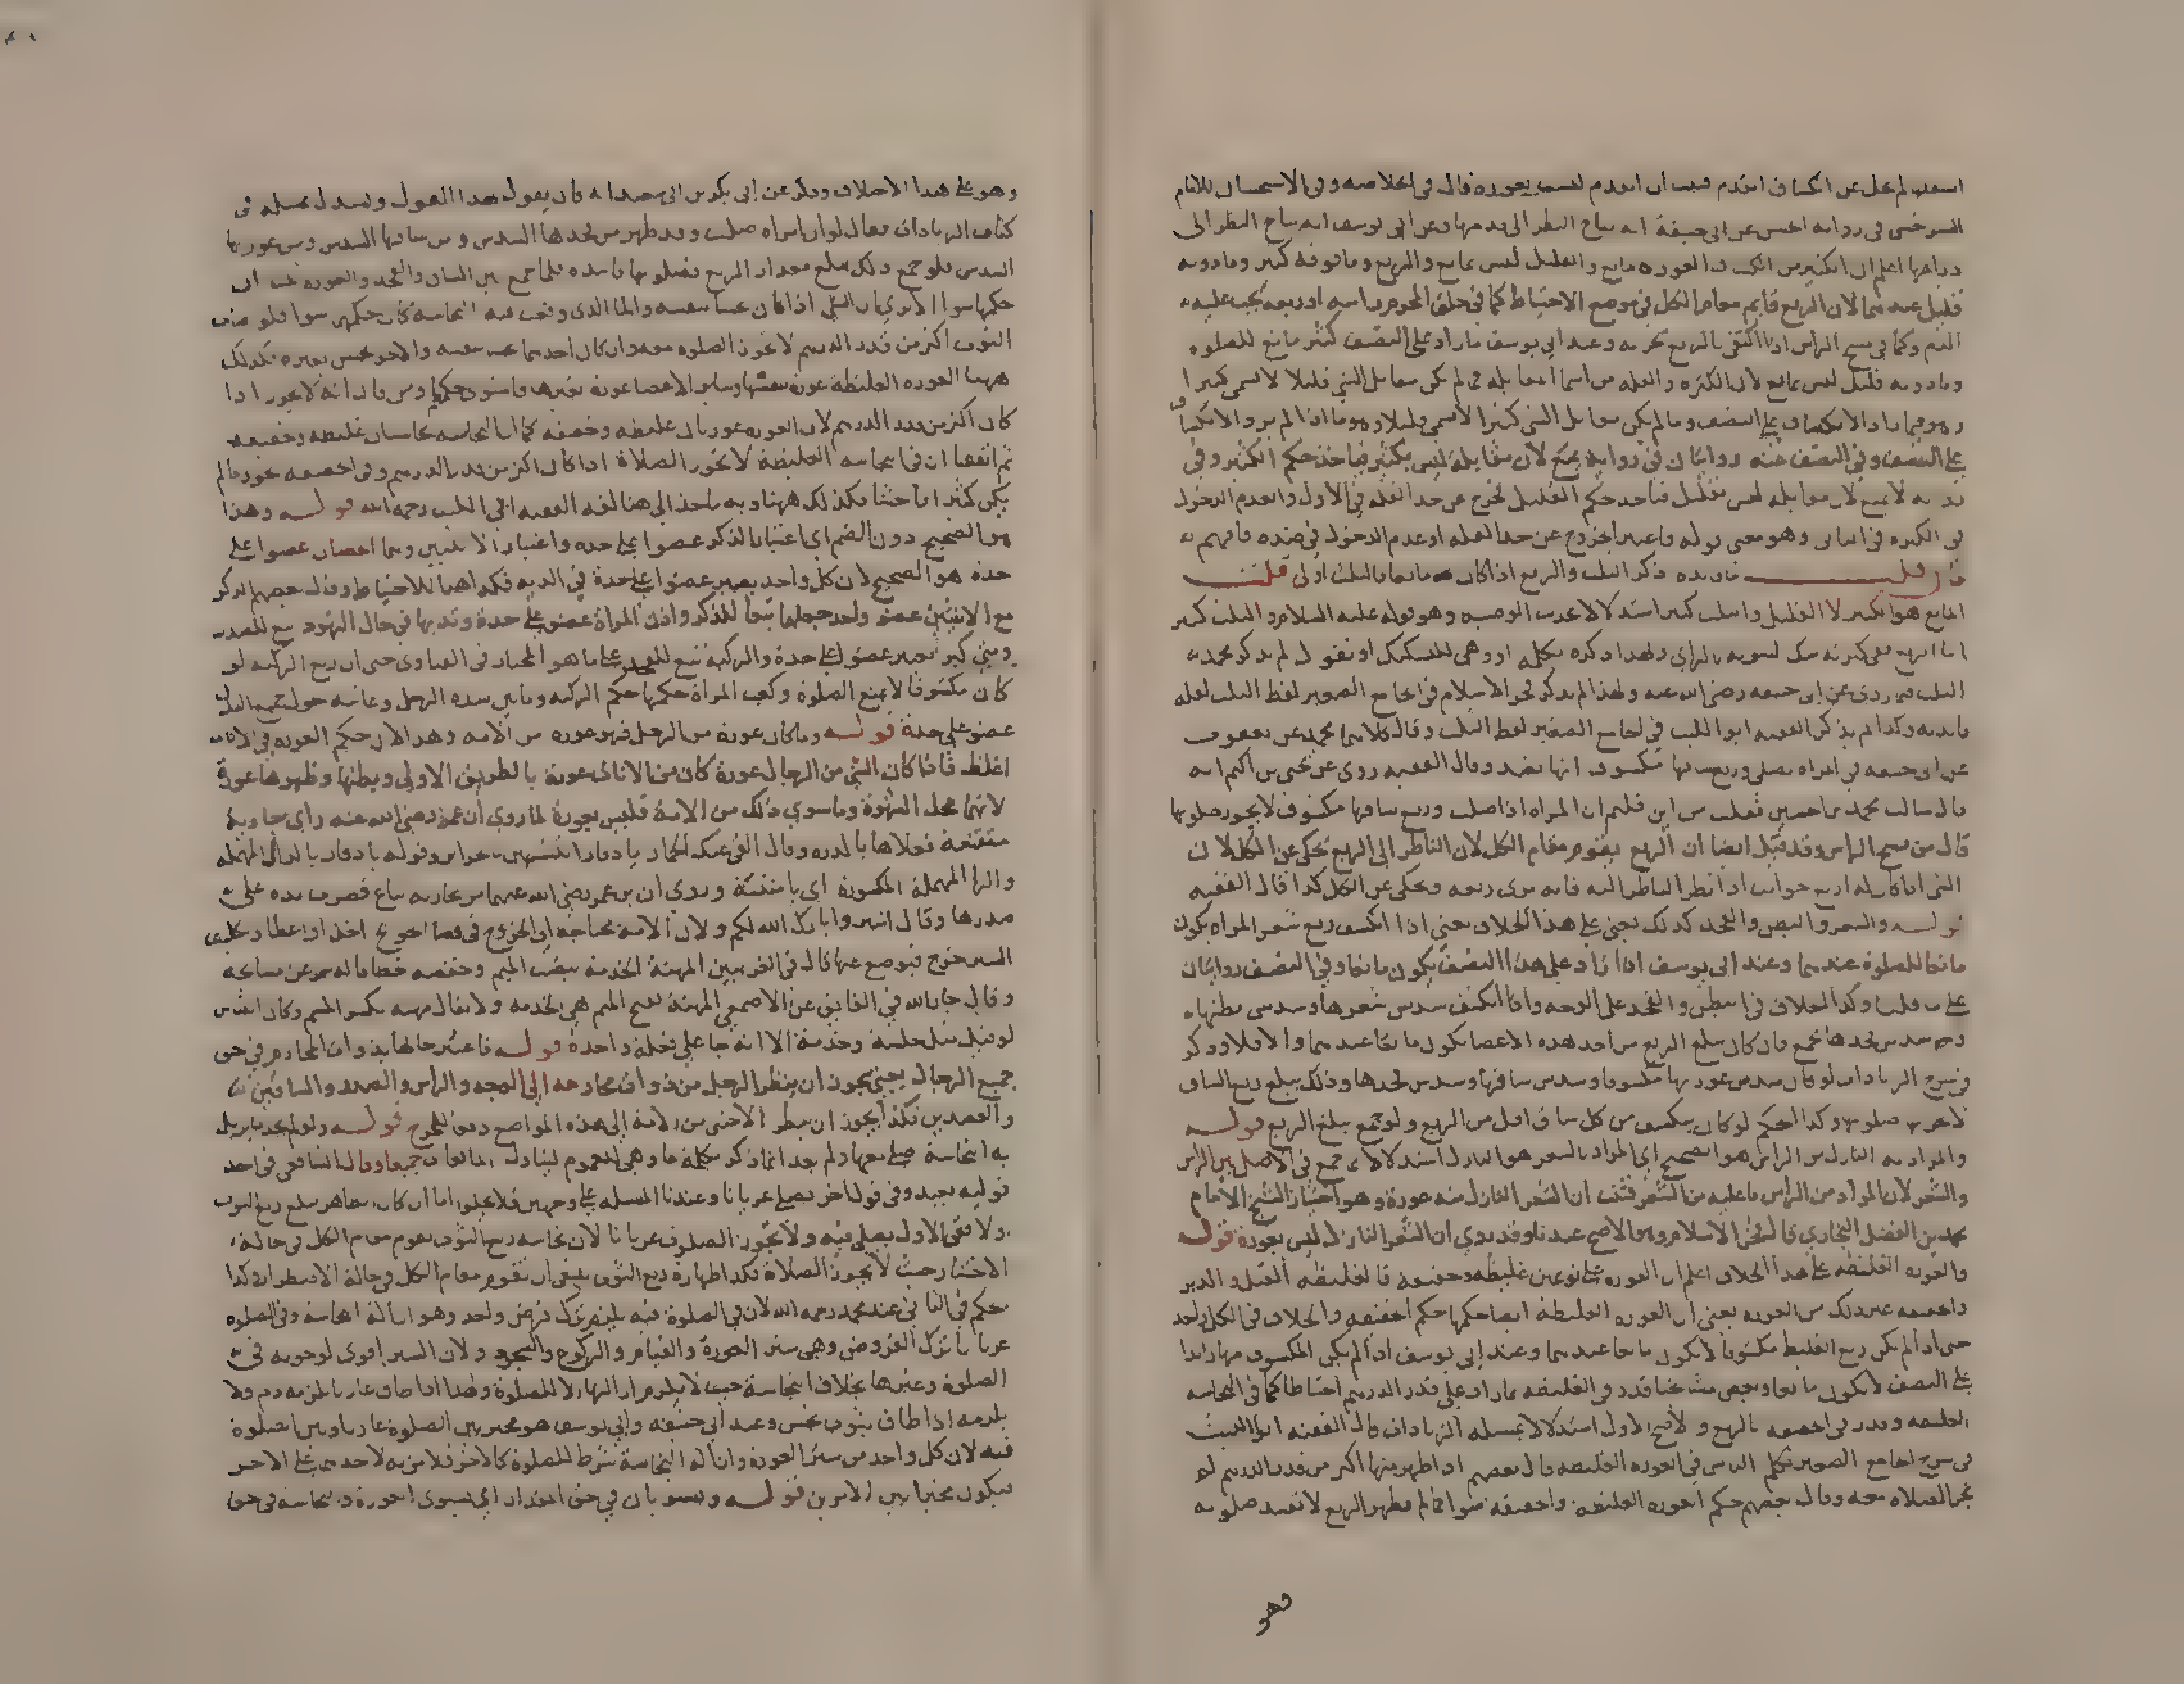 السرخسي في رواية الحسن عن ابي حنيفة انه يباح النظر الى قدمها وعن ابي يوسف انه يباح النظر الى
ذراعها اعلم ان الكثير من انكشاف العورة مانع والقليل ليس بمانع والربع وما فوقه كثير وما دونه
قليل عندهما لان الربع قايم مقام الكل في موضع الاحتياط كما في حلق المحرم راسه او ربعه يجب عليه
الدم وكما في مسح الراس اذا اكتفى بالربع وعند ابي يوسف ما زاد على النصف كثير مانع للصلوة
وما دونه قليل ليس بمانع لان الكثرة والقلة من اسما المقابلة فما لم يكن مقابل الشي قليلا لا يسمى كثيرا
على النصف وفي النصف عنه روايتان في رواية يمنع لان مقابله ليس بكثير فياخذ حكم الكثير وفي
رواية لا يمنع لان مقابله ليس بقليل فياخذ حكم القليل لخروج عن حد القلة في الاول ولعدم الدخول
في الكثرة في الثاني وهو معنى قوله فاعتبر الخروج عن حد القلة او عدم الدخول في ضده فافهم
فان قلت ما فايدة ذكر الثلث والربع اذا كان مانعا فالثلث اولى قلت
المانع هو الكثير لا القليل والثلث كثير استدلالا بحديث الوصية وهو قوله عليه السلام والثلث كثير
اما الربع ففي كثرته شك لثبوته بالراي ولهذا ذكره بكلمة او وهي للتشكيك او نقول لم يذكر محمد
الثلث فيما روى عن ابي حنيفة رضي الله عنه ولهذا لم يذكر فخر الاسلام في الجامع الصغير لفظ الثلث لقلة
فايدته وكذا لم يذكر الفقيه ابو الليث في الجامع الصغير لفظ الثلث وقال كلاهما محمد عن يعقوب
عن ابي حنيفة في امراة تصلي وربع ساقها مكشوف انها تعيد وقال الفقيه روى عن يحيى بن اكثم انه
قال سالت محمد بن الحسن فقلت من اين قلتم ان المراة اذا صلت وربع ساقها مكشوف لا يجوز صلوتها
قال من مسح الراس وقد قيل ايضا ان الربع يقوم مقام الكل لان الناظر الى الربع يحكي عن الكل لان
الشي اذا كان له اربع جوانب اذا نظر الناظر اليه فانه يرى ربعه ويحكي عن الكل كذا قال الفقيه
قوله والشعر والبطن والفخذ كذلك يعني على هذا الخلاف يعني اذا انكشف ربع شعر المراة يكون
مانعا للصلوة عندهما وعند ابي يوسف اذا زاد على هذا النصف يكون مانعا وفي النصف روايتان
على ما قلنا وكذا الخلاف في البطن والفخذ على الوجه واذا انكشف سدس شعرها وسدس بطنها
وسدس فخذها يجمع فان كان يبلغ الربع من احد هذه الاعضا يكون مانعا عندهما والا فلا وذكر
في شرح الزيادات لو كان سدس عورتها مكشوفا وسدس ساقها وسدس فخذها وذلك يبلغ ربع الساق
لا يجزي صلوتها وكذا الحكم لو كان ينكشف من كل ساق اقل من الربع ولو جمع يبلغ الربع قوله
والمراد به النازل من الراس هو الصحيح اي المراد بالشعر هو النازل استدلالا بما جمع في الاصل بين الراس
والشعر لان المراد من الراس ما عليه من الشعر فثبت ان الشعر النازل منه عورة وهو اختيار الشيخ الامام
محمد بن الفضل البخاري قال فخر الاسلام وهو الاصح عندنا وقد روي ان الشعر النازل ليس بعورة قوله
والعورة الغليظة على هذا الخلاف اعلم ان العورة على نوعين غليظة وخفيفة فالغليظة القبل والدبر
والخفيفة غير ذلك من العورة يعني ان العورة الغليظة ايضا حكمها حكم الخفيفة والخلاف في الكل واحد
حتى اذا لم يكن ربع الغليظ مكشوفا لا يكون مانعا عندهما وعند ابي يوسف اذا لم يكن المكشوف منها زايدا
على النصف لا يكون مانعا وبعض مشايخنا قدر في الغليظة بما زاد على قدر الدرهم احتياطا كما في النجاسة
الغليظة وقدر في الخفيفة بالربع والاصح الاول استدلالا بمسئلة الزيادات قال الفقيه ابو الليث
في شرح الجامع الصغير تكلم الناس في العورة الغليظة قال بعضهم اذا ظهر منها اكثر من قدر الدرهم لم
تجز الصلاة معه وقال بعضهم حكم العورة الغليظة والخفيفة سوا فما لم يظهر الربع لا تفسد صلوته
وهو
وهو على هذا الاختلاف
كتاب الزيادات فقال لو ان امراة صلت وقد ظهر من فخذها السدس ومن ساقها السدس ومن عورتها
السدس فلو جمع ذلك يبلغ مقدار الربع فصلوتها فاسدة فلما جمع بين الساق والفخذ والعورة ثبت ان
الثوب اكثر من قدر الدرهم لا يجوز الصلوة معه وان كان احدهما نجسا بعينه والاخر نجس بغيره فكذلك
ههنا العورة الغليظة عورة بعينها وساير الاعضا عورة بغيرها فاستوى حكمهما ومن قال انه لا يجوز اذا
كان اكثر من قدر الدرهم لان العورة عورتان غليظة وخفيفة كما ان النجاسة نجاستان غليظة وخفيفة
ثم اتفقنا ان في النجاسة الغليظة لا تجوز الصلاة اذا كان اكثر من قدر الدرهم وفي الخفيفة تجوز ما لم
يكن كثيرا فاحشا فكذلك ههنا وبه ناخذ الى هنا لفظ الفقيه ابي الليث رحمه الله قوله وهذا
هو الصحيح دون الضم اي اعتبار الذكر عضوا على حدة واعتبار الانثيين وهما الخصيتان عضوا على
حدة هو الصحيح لان كل واحد يعتبر عضوا على حدة في الدية فكذا ههنا للاحتياط وقال بعضهم الذكر
مع الانثيين عضو واحد جعلهما تبعا للذكر واذن المراة عضو على حدة وثديها في حال النهود تبع للصدر
ومتى كبر يعتبر عضوا على حدة والركبة تبع للفخذ على ما هو المختار في الفتاوى حتى ان ربع الركبة لو
كان مكشوفا لا يمنع الصلوة وكعب المراة حكمها حكم الركبة وما بين سرة الرجل وعانته حول جميع البدن
عضو على حدة قوله وما كان عورة من الرجل فهو عورة من الامة وهذا لان حكم العورة في الاناث
اغلظ فاذا كان الشي من الرجال عورة كان من الاناث عورة بالطريق الاولى وبطنها وظهرها عورة
لانهما محل الشهوة وما سوي ذلك من الامة فليس بعورة لما روي ان عمر رضي الله عنه راى جارية
متقنعة فعلاها بالدرة وقال القي عنك الخمار يا دفار اتتشبهين بالحراير وقوله يا دفار بالدال المهملة
والرا المهملة المكسورة اي يا منتنة وروي ان بن عمر رضي الله عنهما مر بجارية تباع فضرب يده على
صدرها وقال اشتروا بارك الله لكم ولان الامة محتاجة الى الخروج
الستر حرج فيوضع عنها قال في الغريبين المهنة الخدمة بنصب الميم وخفضه خطا
وقال جار الله في الفايق عن الاصمعي المهنة بفتح الميم هي الخدمة ولا يقال مهنة بكسر الميم وكان القياس
لو قيل مثل جلسة وخدمة الا انه جا على فعلة واحدة قوله فاعتبر حالها بذوات المحارم في حق
جميع الرجال يعني يجوز ان ينظر الرجل من ذوات محارمه الى الوجه والراس والصدر والساقين
والعضدين فكذا يجوز ان ينظر الاجنبي من الامة الى هذه المواضع دفعا للحرج قوله ولو لم يجد ما يزيل
به النجاسة صلى معها ولم يعد انما ذكر بكلمة ما وهي للعموم ليتناول المايعات جميعا وقال الشافعي في احد
قوليه يعيد وفي قول اخر يصلي عريانا وعندنا المسئلة على وجهين فلا يخلوا اما ان كان الطاهر يبلغ ربع الثوب
او لا ففي الاول يصلي فيه ولا تجوز الصلوة عريانا لان نجاسة ربع الثوب يقوم مقام الكل في حالة
الاختيار حيث لا يجوز الصلاة فكذا طهارة ربع الثوب ينبغي ان تقوم مقام الكل في حالة الاضطرار وكذا
الحكم في الثاني عند محمد رحمه الله لان في الصلوة فيه يلزم ترك فرض واحد وهو ازالة النجاسة وفي الصلوة
عريانا ترك الفروض وهي ستر العورة والقيام والركوع والسجود ولان الستر اقوى لوجوبه في
الصلوة وغيرها بخلاف النجاسة حيث لا يلزم ازالتها الا للصلوة ولهذا اذا طاف عاريا لزمه دم ولا
يلزمه اذا طاف بثوب نجس وعند ابي حنيفة وابي يوسف هو مخير بين الصلوة عاريا وبين الصلوة
فيه لان كل واحد من ستر العورة وازالة النجاسة شرط للصلوة كالاخر فلا مزية لاحدهما على الاخر
فيكون مخيرا بين الامرين قوله ويستويان في حق المقدار اي يستوي العورة والنجاسة في حق